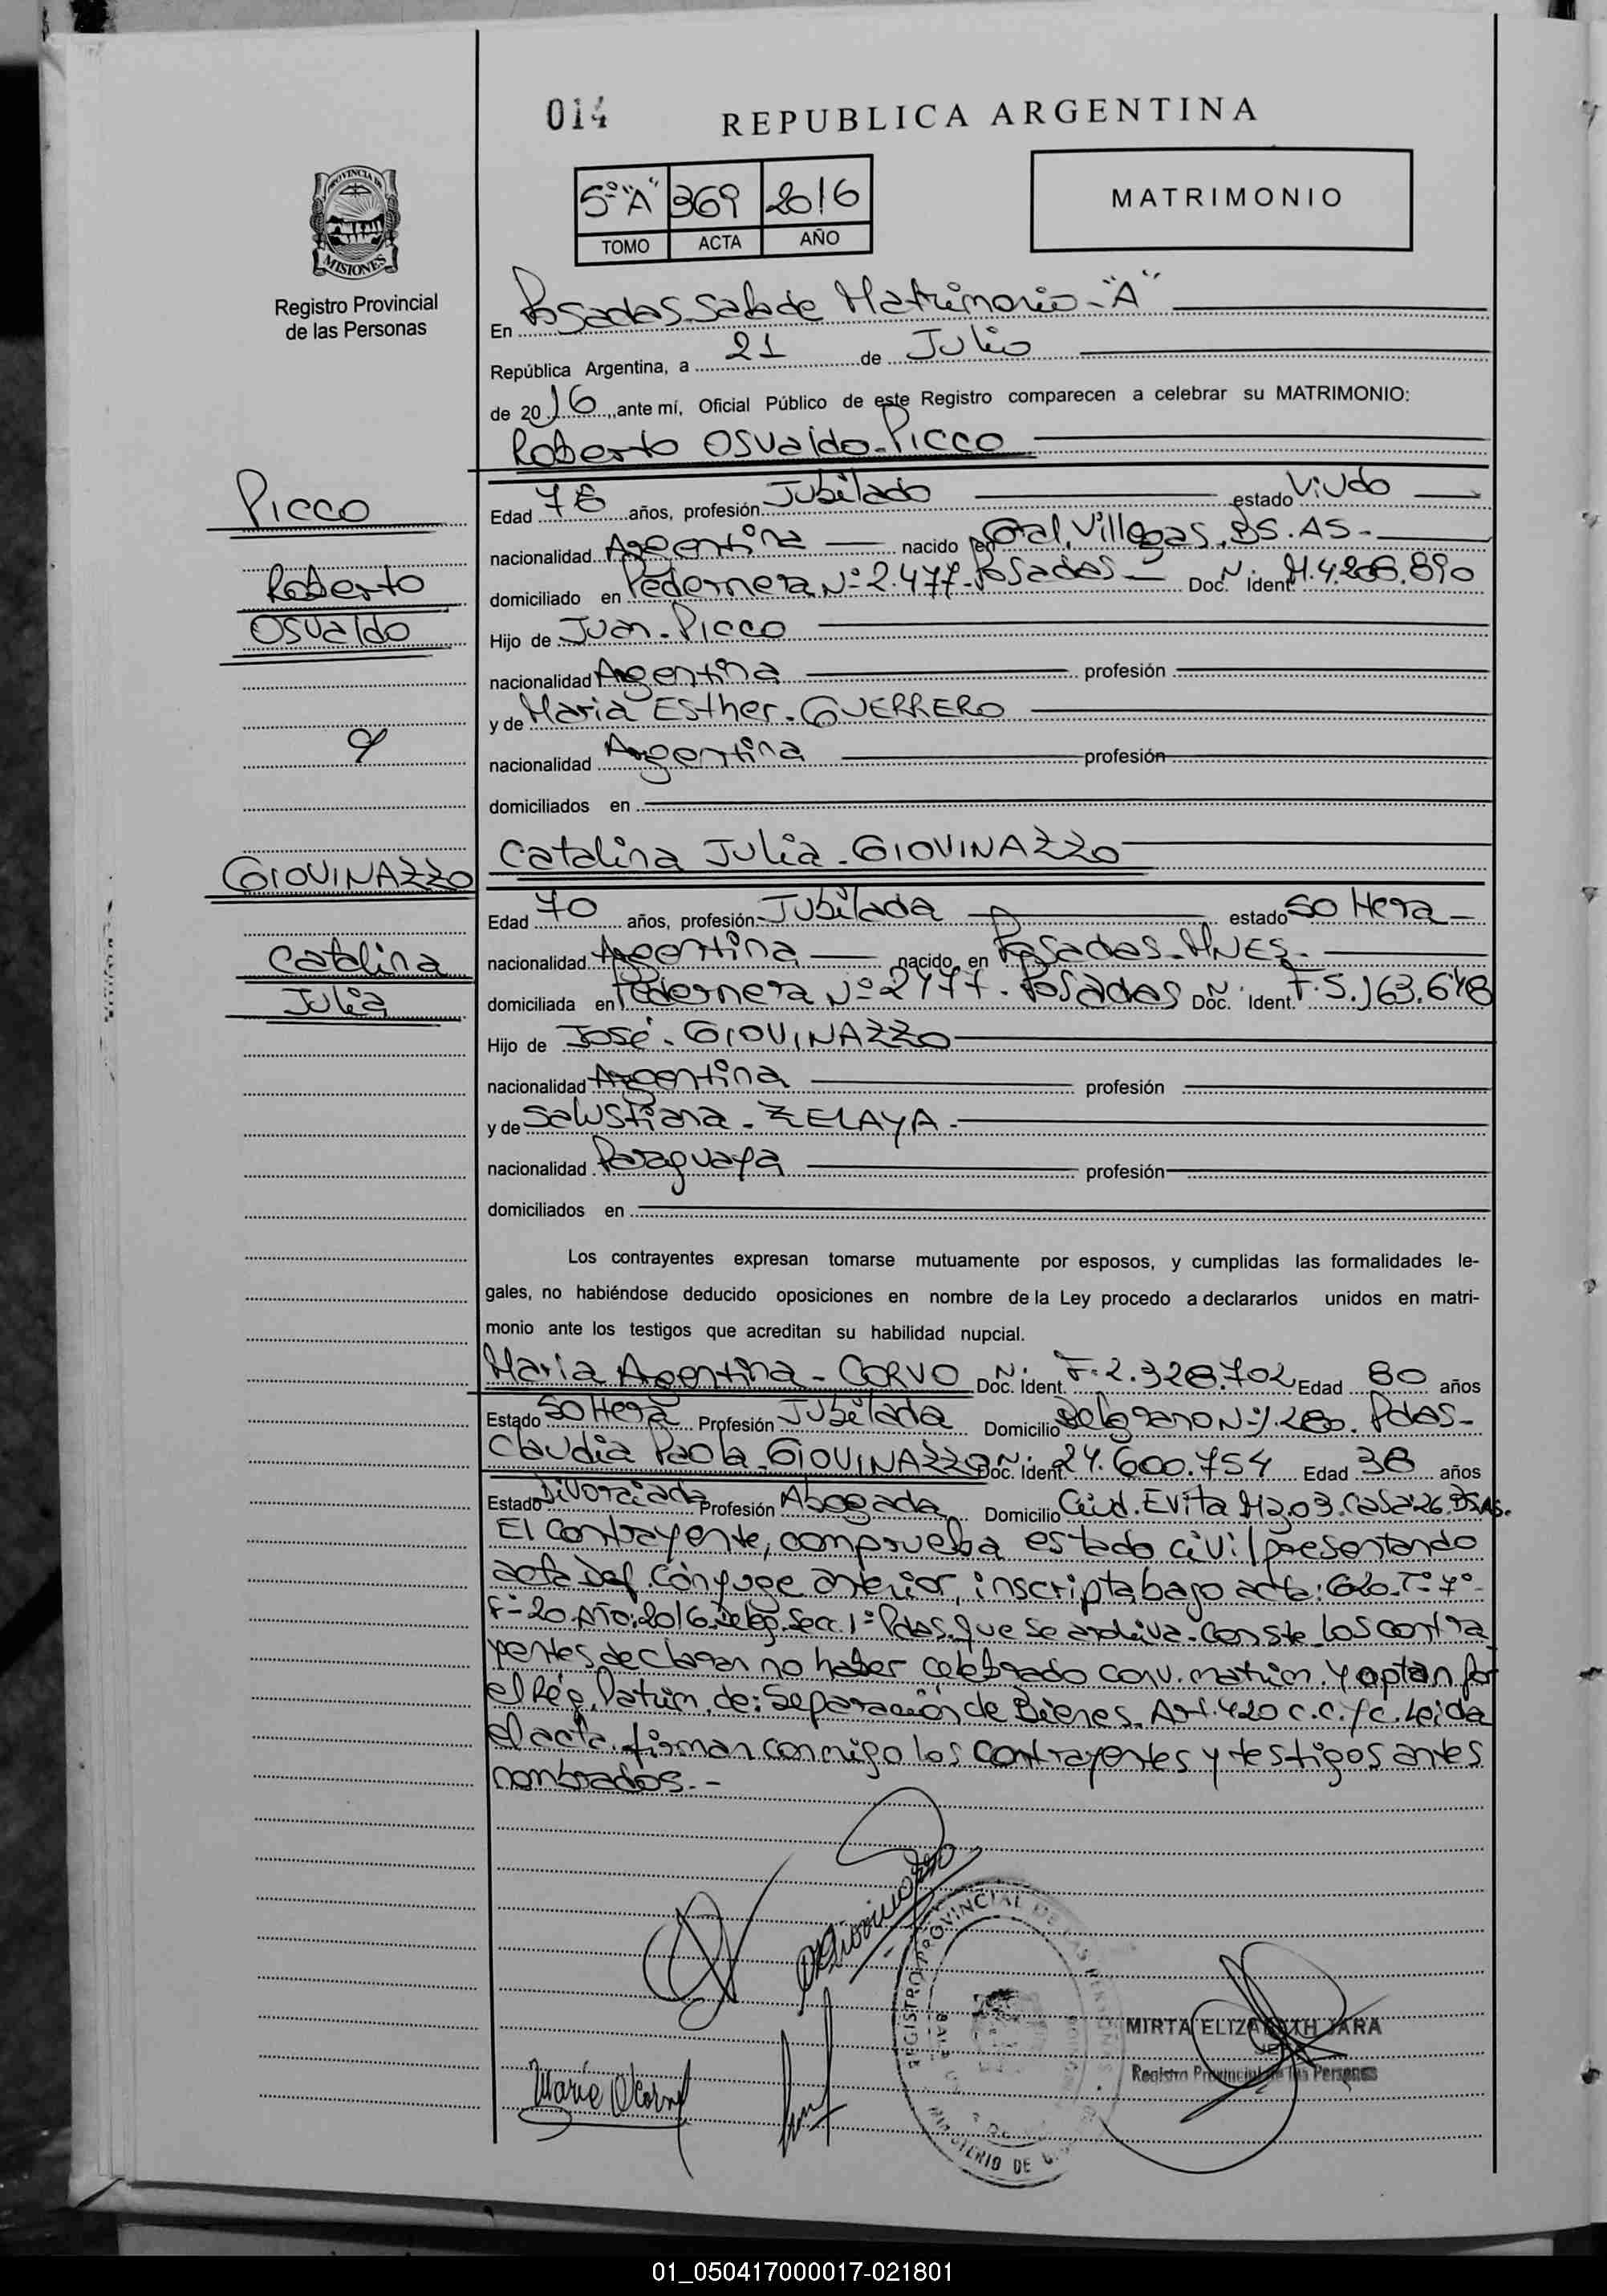 014
REPUBLICA ARGENTINA
PROVINCIA DE
MISIONES
Registro Provincial
de las Personas
5º "A" 369 2016
TOMO ACTA AÑO
MATRIMONIO
En Posadas Sala de Matrimonio - "A"
República Argentina, a 21 de Julio
de 2016, ante mí, Oficial Público de este Registro comparecen a celebrar su MATRIMONIO:
Roberto Osvaldo - Picco
Picco
Roberto
Osvaldo
Edad 78 años, profesión Jubilado estado Viudo
nacionalidad Argentina nacido en Gral. Villegas, BS. AS.-
domiciliado en Pedernera Nº 2.477 - Posados Doc. Ident. M. 4.206.890
Hijo de Juan - Picco
nacionalidad Argentina profesión
y de Maria Esther - GUERRERO
nacionalidad Argentina profesión
domiciliados en
y
GIOVINAZZO
Catalina
Julia
Catalina Julia - GIOVINAZZO
Edad 70 años, profesión Jubilada estado Soltera -
nacionalidad Argentina nacido en Posadas - MNES -
domiciliada en Pedernera Nº 2477 - Posadas Doc. Ident. F. 5.163.648
Hijo de José - GIOVINAZZO
nacionalidad Argentina profesión
y de Salustiana - ZELAYA -
nacionalidad Paraguaya profesión
domiciliados en
Los contrayentes expresan tomarse mutuamente por esposos, y cumplidas las formalidades le-
gales, no habiéndose deducido oposiciones en nombre de la Ley procedo a declararlos unidos en matri-
monio ante los testigos que acreditan su habilidad nupcial.
Maria Argentina - CORVO Doc. Ident. F. 2.328.702 Edad 80 años
Estado Soltera Profesión Jubilada Domicilio Belgrano Nº 1.280. Pdas -
Claudia Paola - GIOVINAZZO Doc. Ident. 24.600.754 Edad 38 años
Estado Divorciada Profesión Abogada Domicilio Ciud. Evita Mz. 03. Casa 26. BS AS.
El contrayente, comprueba estado civil presentando
acta Def. Cónyuge anterior, inscripta bajo acta: Tº 7º
Fº 20. Año: 2016. Deleg. Secc. 1ª Pdas. que se archiva. Conste. Los contra
yentes declaran no haber celebrado conv. matrim. y optan por
el Rég. Patrim. de: Separación de Bienes. Art. 420 C.C. y C. Leida
el acta, firman conmigo los contrayentes y testigos antes
nombrados. -
REGISTRO PROVINCIAL DE LAS PERSONAS
MINISTERIO DE
MIRTA ELIZABETH JARA
JEFE
Registro Provincial de las Personas
01_050417000017-021801